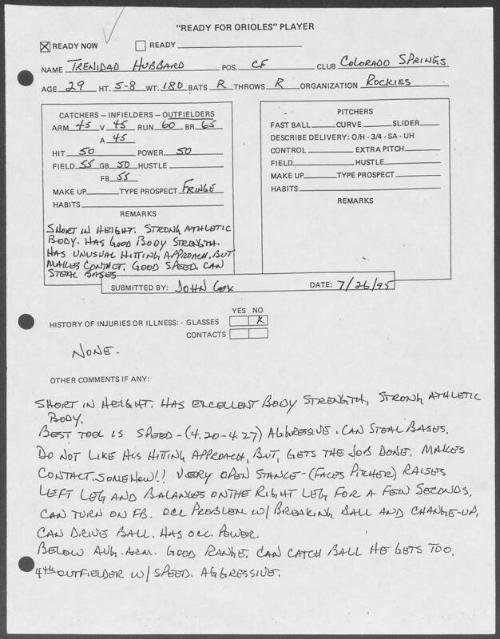 "READY FOR ORIOLES" PLAYER
☒ READY NOW ☐ READY
NAME TRENIDAD HUBBARD POS. CF CLUB COLORADO SPRINGS
AGE 29 HT. 5-8 WT. 180 BATS R THROWS R ORGANIZATION ROCKIES
CATCHERS – INFIELDERS – OUTFIELDERS
ARM 45 V 45 RUN 60 BR 65
A 45
HIT 50 POWER 50
FIELD 55 GB 50 HUSTLE
FB 55
MAKE UP TYPE PROSPECT FRINGE
HABITS
REMARKS
SHORT IN HEIGHT. STRONG ATHLETIC
BODY. HAS GOOD BODY STRENGTH.
HAS UNUSUAL HITTING APPROACH, BUT
MAKES CONTACT. GOOD SPEED. CAN
STEAL BASES
PITCHERS
FAST BALL CURVE SLIDER
DESCRIBE DELIVERY: O/H - 3/4 - SA - UH
CONTROL EXTRA PITCH
FIELD HUSTLE
MAKE UP TYPE PROSPECT
HABITS
REMARKS
SUBMITTED BY: JOHN COX DATE: 7/26/95
YES NO
HISTORY OF INJURIES OR ILLNESS: - GLASSES X
CONTACTS
NONE.
OTHER COMMENTS IF ANY:
SHORT IN HEIGHT. HAS EXCELLENT BODY STRENGTH, STRONG ATHLETIC
BODY.
BEST TOOL IS SPEED - (4.20-4.27) AGGRESSIVE. CAN STEAL BASES.
DO NOT LIKE HIS HITTING APPROACH, BUT, GETS THE JOB DONE. MAKES
CONTACT. SOMEHOW!! VERY OPEN STANCE - (FACES PITCHER) RAISES
LEFT LEG AND BALANCES ON THE RIGHT LEG FOR A FEW SECONDS,
CAN TURN ON FB. OCC PROBLEM W/ BREAKING BALL AND CHANGE-UP,
CAN DRIVE BALL. HAS OCC POWER.
BELOW AVG. ARM. GOOD RANGE. CAN CATCH BALL HE GETS TOO,
4TH OUTFIELDER W/ SPEED. AGGRESSIVE.